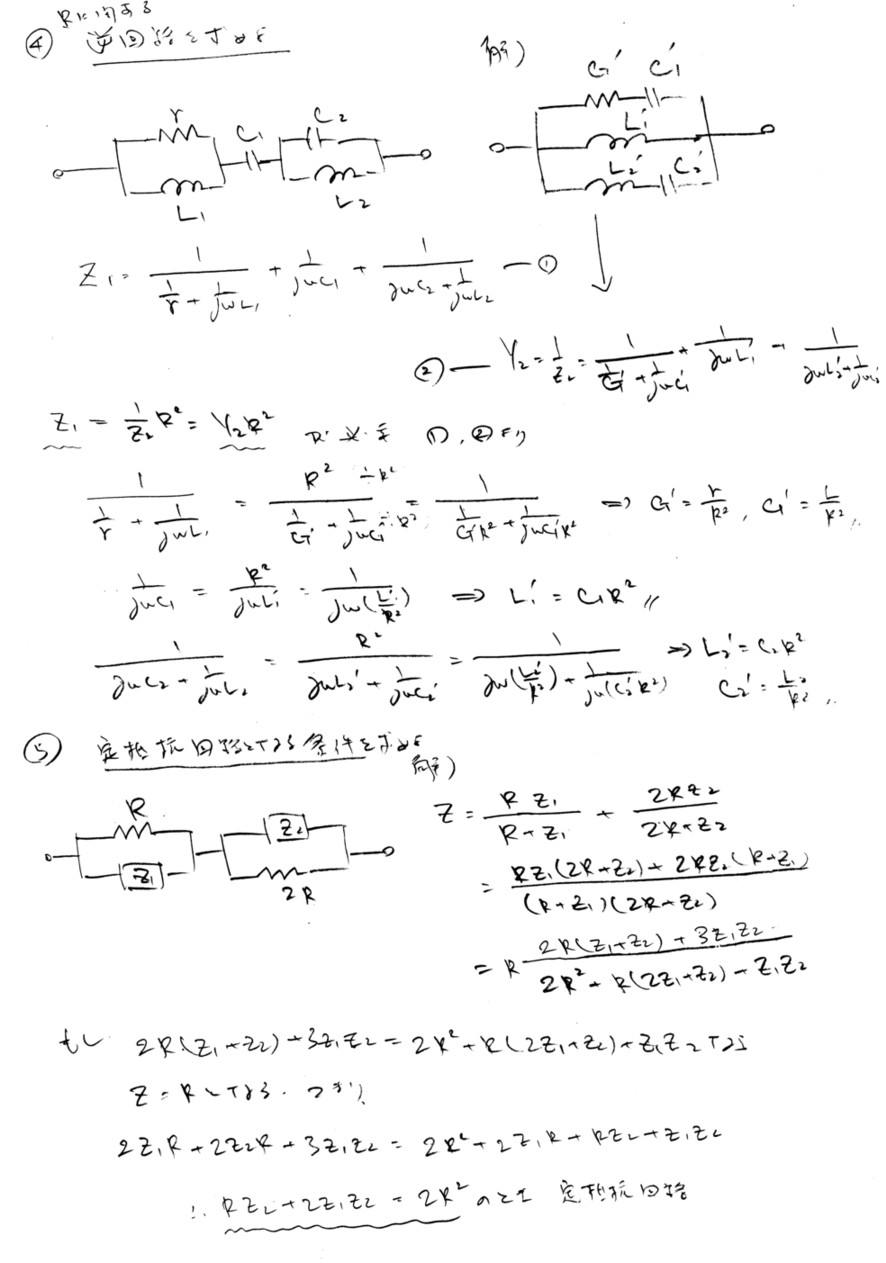 Rに関する
④ 逆回路を求めよ
解)
r
C₁
C₂
L₁
L₂
G' C₁'
L₁'
L₂' C₂'
Z₁ = 1/(1/r + 1/jωL₁) + 1/jωC₁ + 1/(jωC₂ + 1/jωL₂) — ①
② — Y₂ = 1/Z₂ = 1/(1/G' + 1/jωC₁') + 1/jωL₁' + 1/(jωL₂' + 1/jωC₂')
Z₁ = 1/Z₂ R² = Y₂R² ①, ②より
1/(1/r + 1/jωL₁) = R²/(1/G' + 1/jωC₁') ÷R² ÷R² = 1/(1/G'R² + 1/jωC₁'R²) ⇒ G' = r/R², C₁' = L/R² //
1/jωC₁ = R²/jωL₁' = 1/jω(L₁'/R²) ⇒ L₁' = C₁R² //
1/(jωC₂ + 1/jωL₂) = R²/(jωL₂' + 1/jωC₂') = 1/(jω(L₂'/R²) + 1/jω(C₂'R²)) ⇒ L₂' = C₂R²
C₂' = L₂/R² //
⑤ 定抵抗回路となる条件を求めよ
解)
R
Z₁
Z₂
2R
Z = RZ₁/(R+Z₁) + 2RZ₂/(2R+Z₂)
= (RZ₁(2R+Z₂) + 2RZ₂(R+Z₁))/((R+Z₁)(2R+Z₂))
= R (2R(Z₁+Z₂) + 3Z₁Z₂)/(2R² + R(2Z₁+Z₂) + Z₁Z₂)
もし 2R(Z₁+Z₂) + 3Z₁Z₂ = 2R² + R(2Z₁+Z₂) + Z₁Z₂ ならば
Z = R となる. つまり
2Z₁R + 2Z₂R + 3Z₁Z₂ = 2R² + 2Z₁R + RZ₂ + Z₁Z₂
∴ RZ₂ + 2Z₁Z₂ = 2R² のとき 定抵抗回路